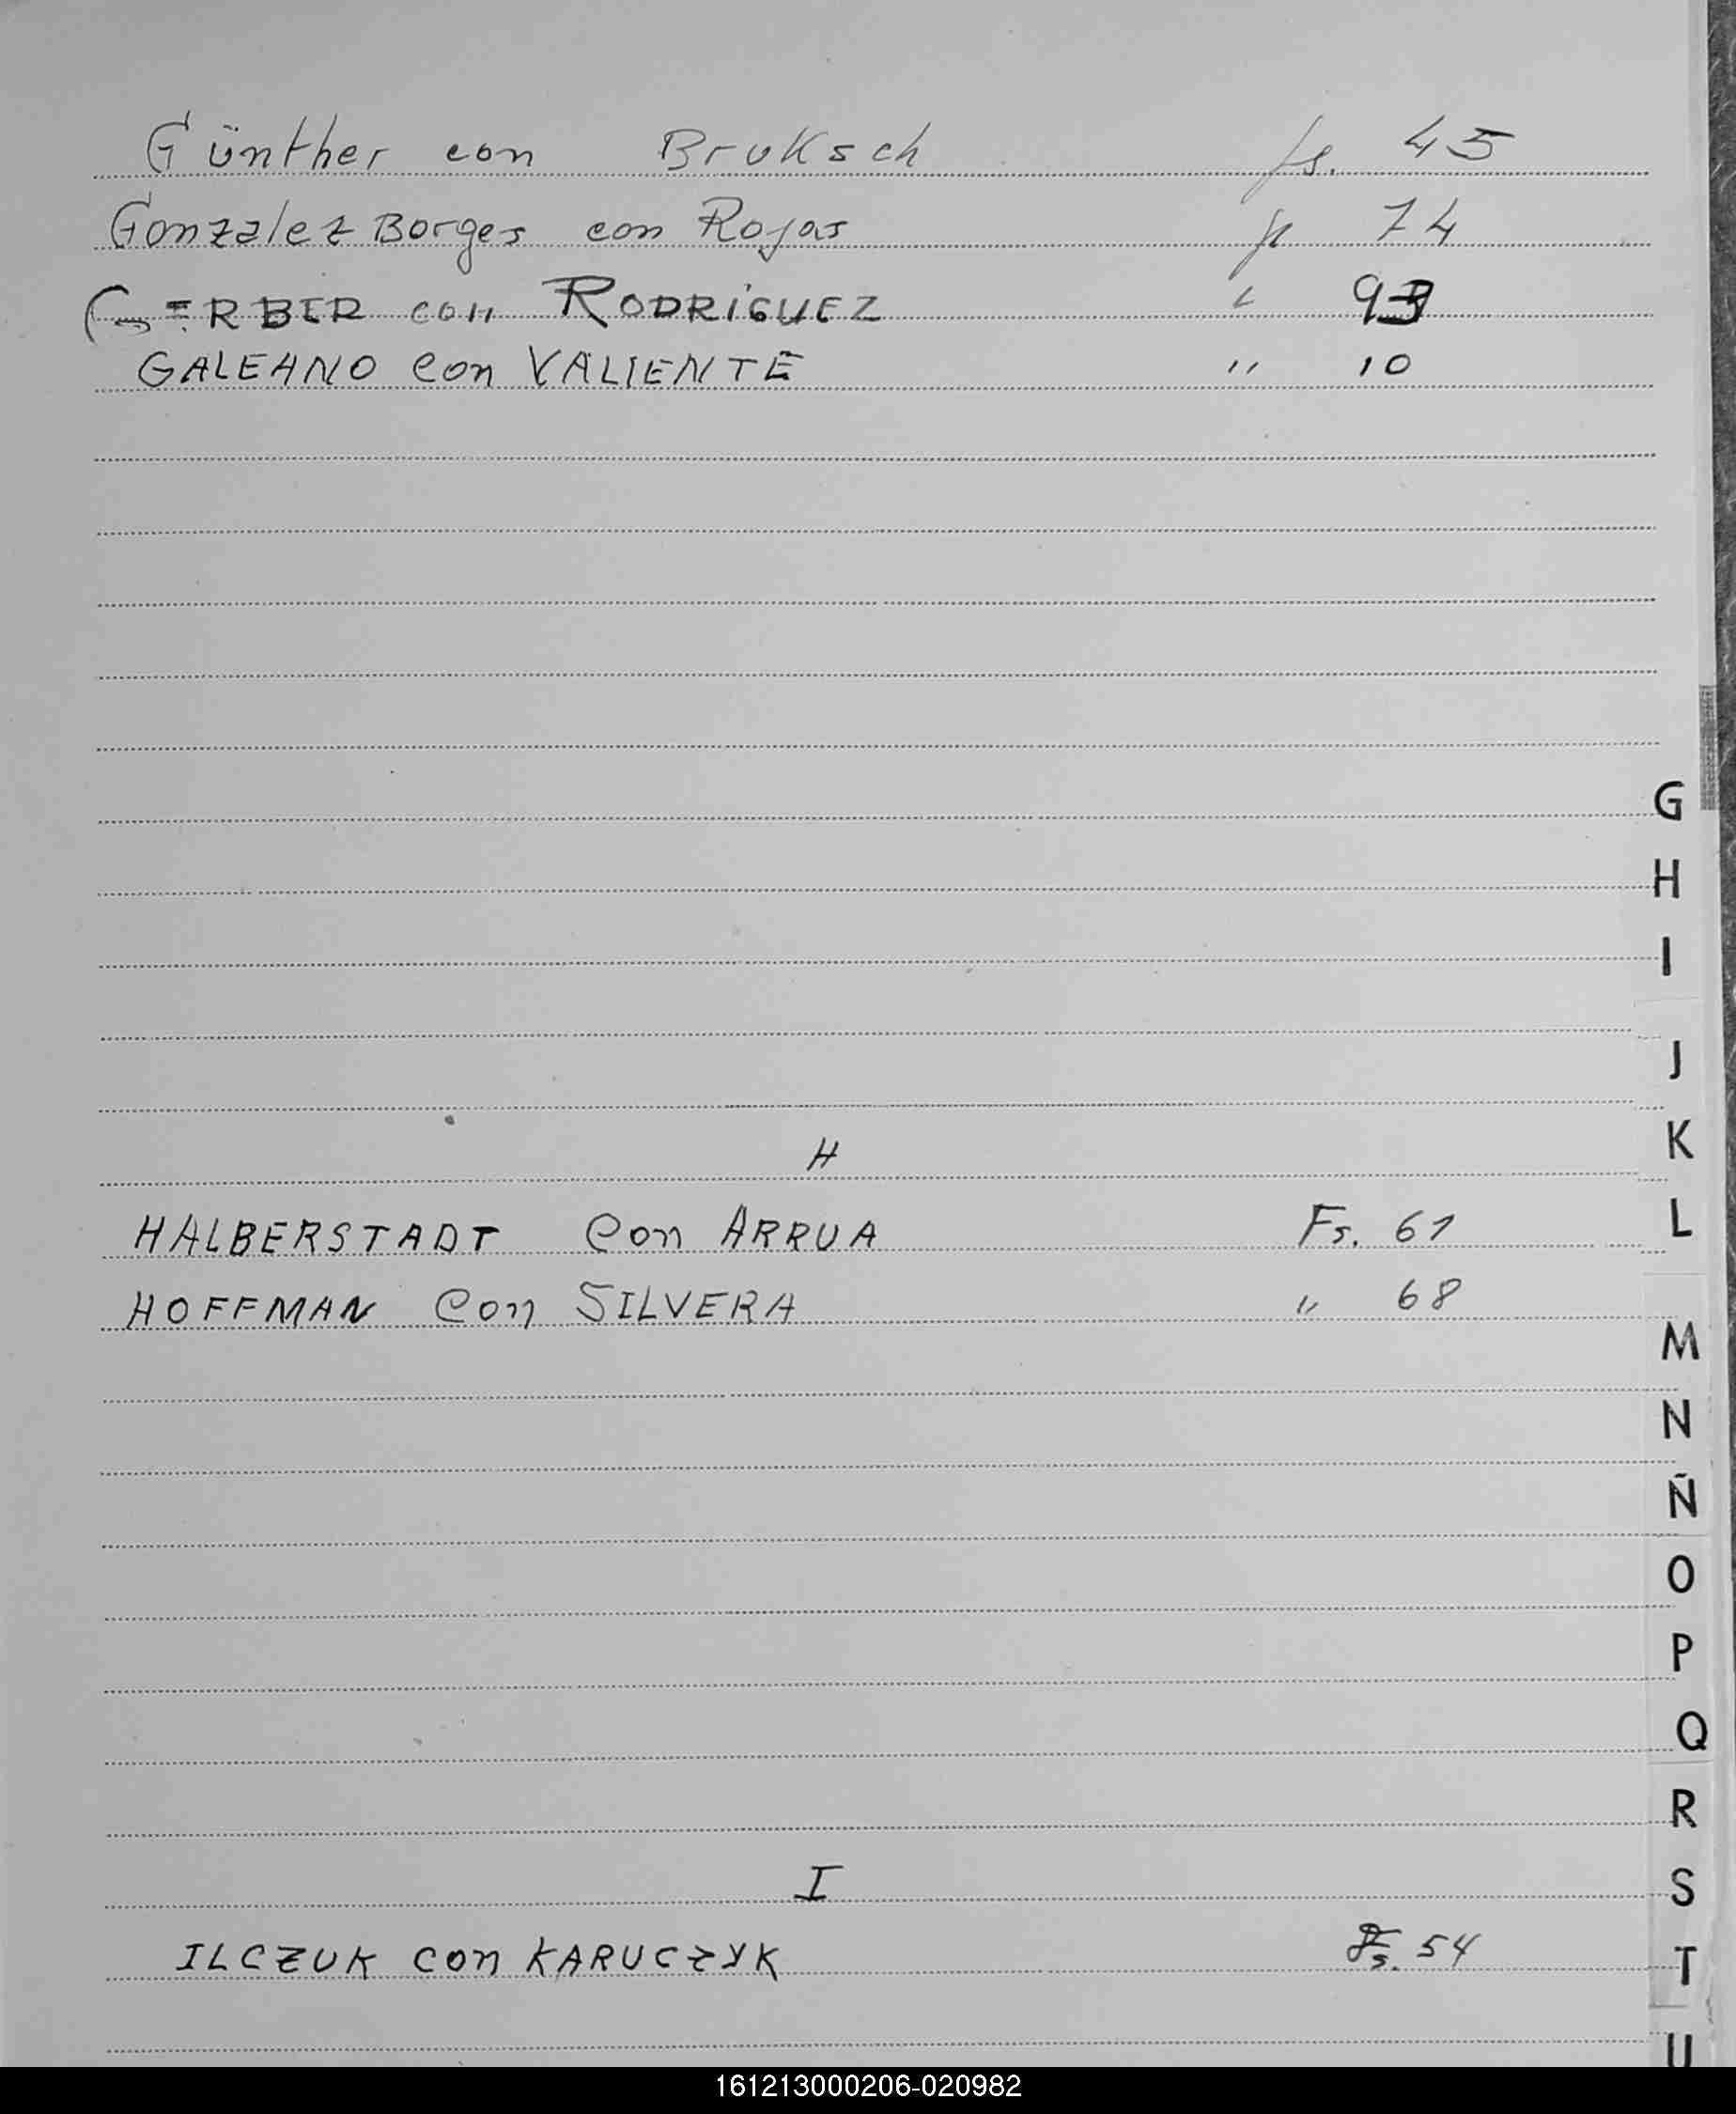 Günther con Bruksch fs. 45
Gonzalez Borges con Rojas fs 74
GERBER con RODRiGUEZ "
GALEANO con VALIENTE " 10
G
H
I
J
K
H
L
HALBERSTADT con ARRUA Fs. 61
HOFFMAN con SILVERA " 68
M
N
Ñ
O
P
Q
R
I
S
ILCZUK con KARUCZYK Fs. 54
T
U
161213000206-020982